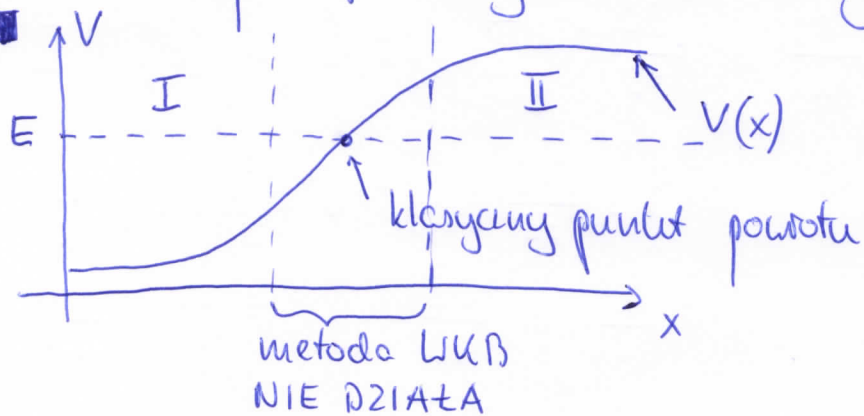 V
I
II
E
V(x)
klasyczny punkt powrotu
x
metoda WKB
NIE DZIAŁA